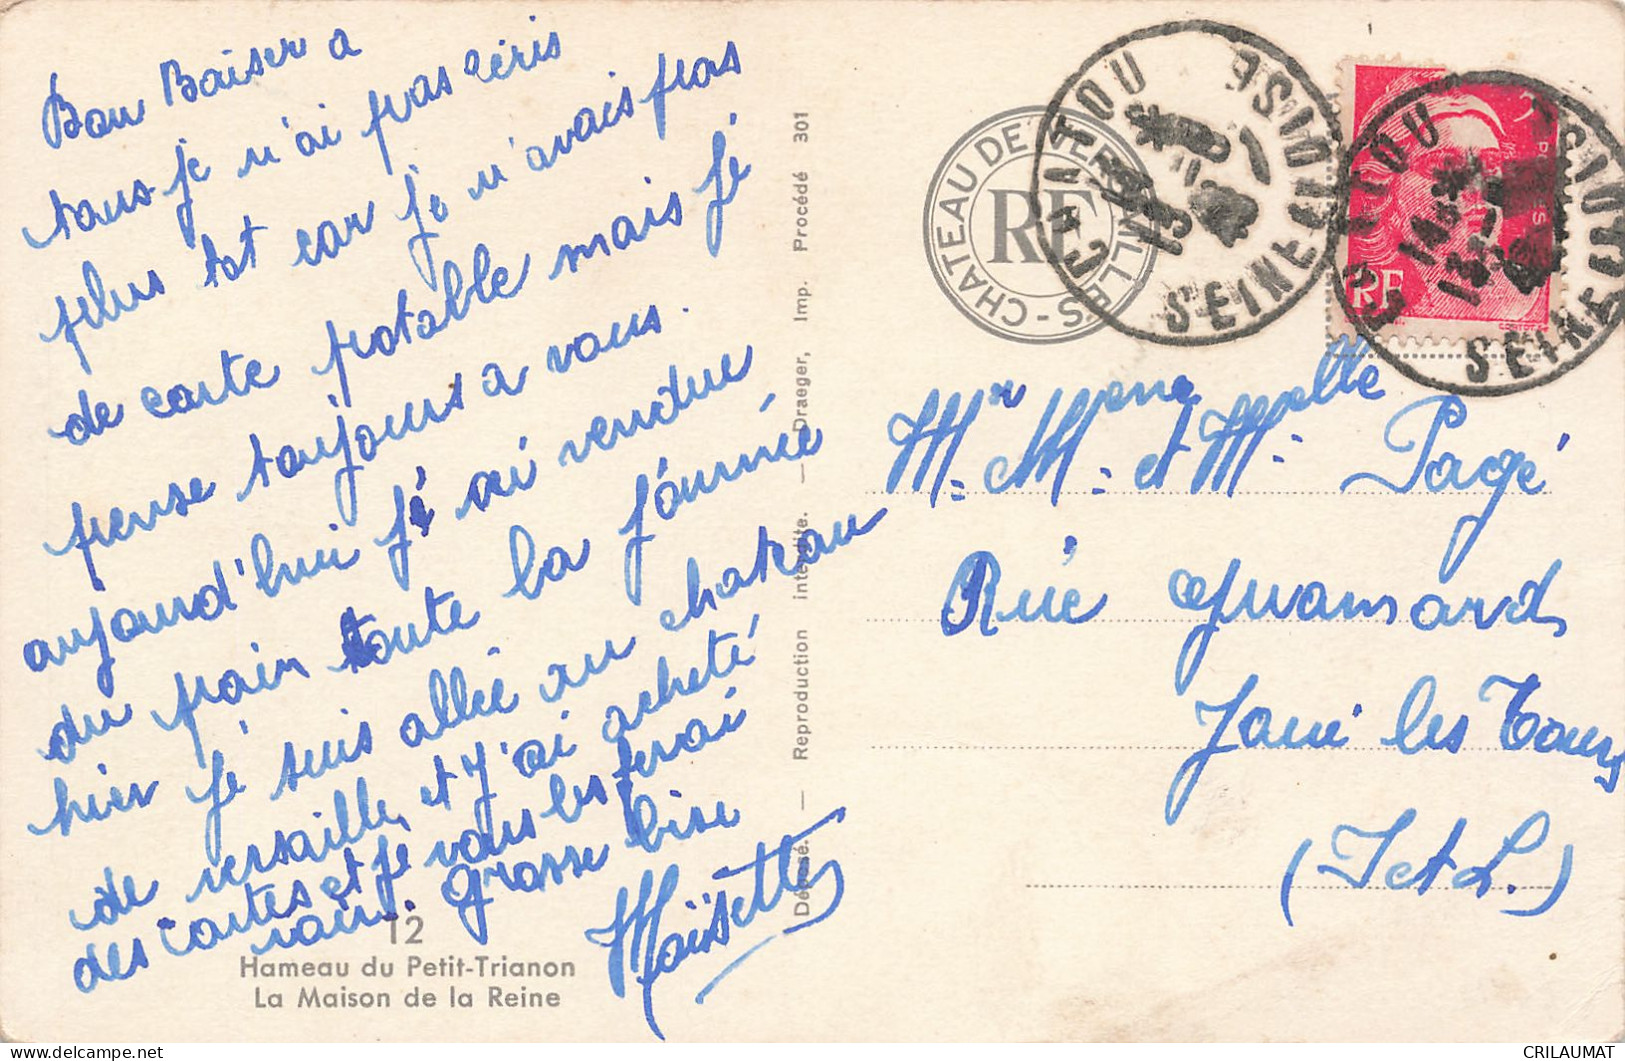 Bon Baiser a
tous je n'ai pas écris
plus tot car je n'avais pas
de carte potable mais jé
pense toujours a vous.
aujourd'hui jé ai vendue
du pain toute la journée
hier jé suis allée au chateau
de versaille, et j'ai acheté
des cartes et je vous les ferai
voir. grosse bise
Maïsette
12
Hameau du Petit-Trianon
La Maison de la Reine
Déposé. — Reproduction interdite. — Draeger, Imp. Procédé 301
CHATEAU DE VERSAILLES
RF
CHATOU
SEINE ET OISE
CHATOU
SEINE ET OISE
POSTES
RF
Mr. Mme. et Melle. Pagé
Rue
Joué les Tours
(I et L.)
CRILAUMAT